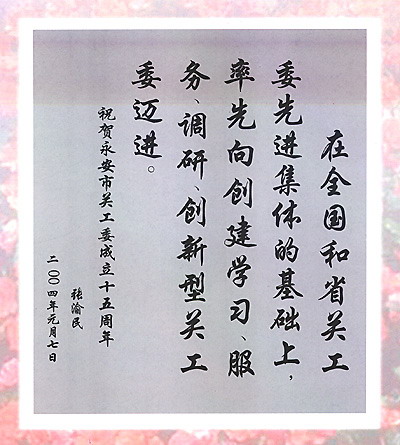 在全国和省关工
委先进集体的基础上，
率先向创建学习、服
务、调研、创新型关工
委迈进。
祝贺永安市关工委成立十五周年
张渝民
二〇〇四年元月七日